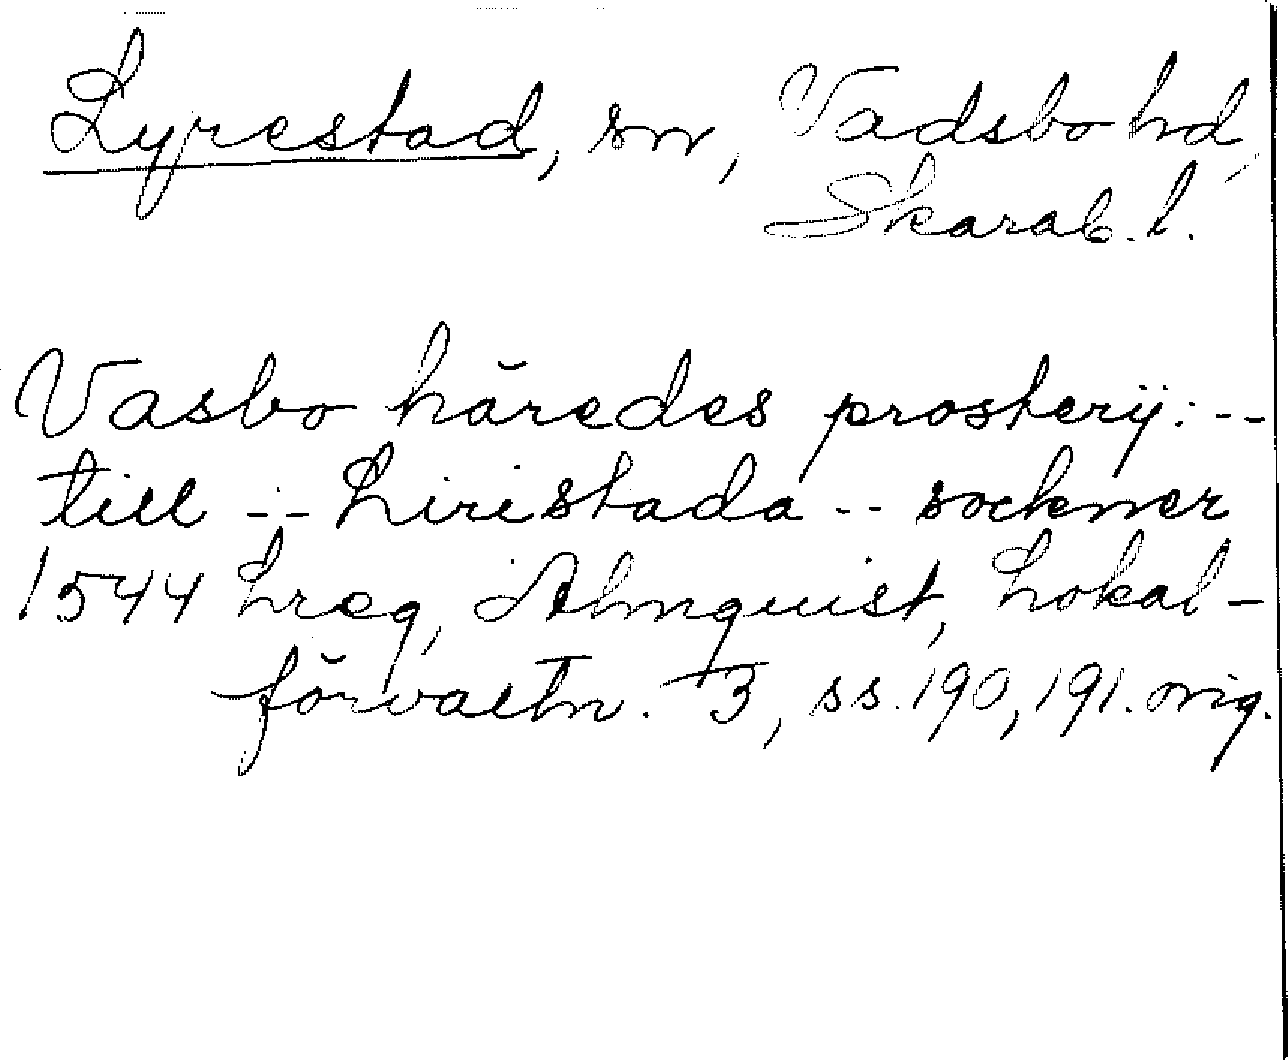 Lyrestad, sn, Vadsbo hd,
Skarab. l.
Vasbo häredes prosterij: --
till -- Liristada -- sockner
1544 Lreg, Almquist, Lokal-
förvaltn. 3, ss. 190, 191. orig.